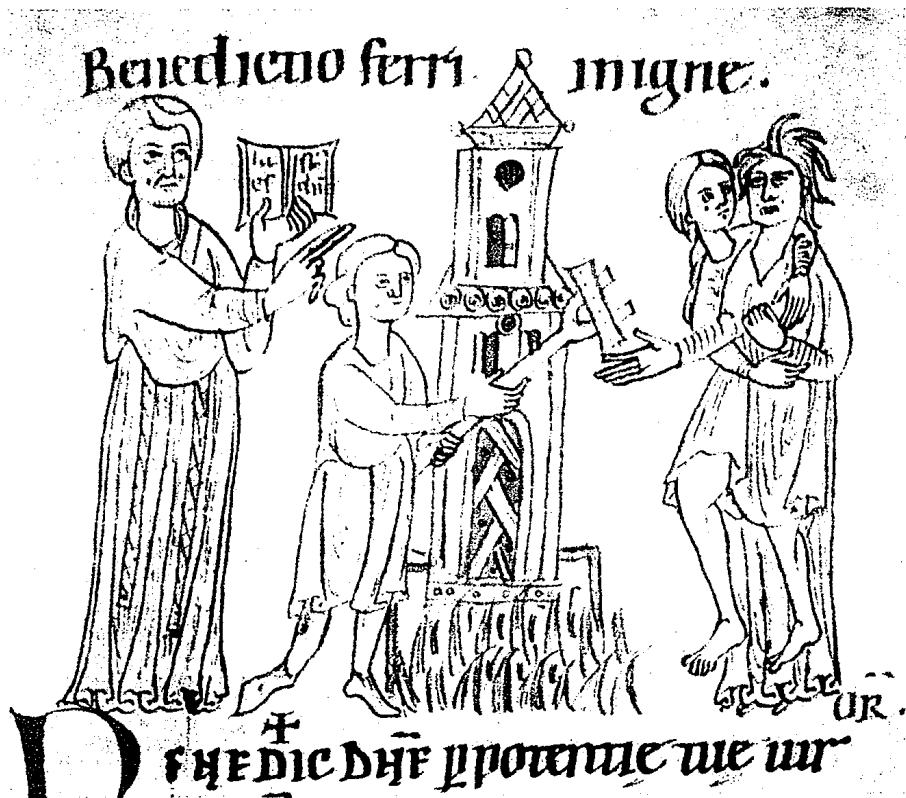 Benedictio ferri in igne.
UR̄.
BENEDIC DN̄E p potentie tue uir